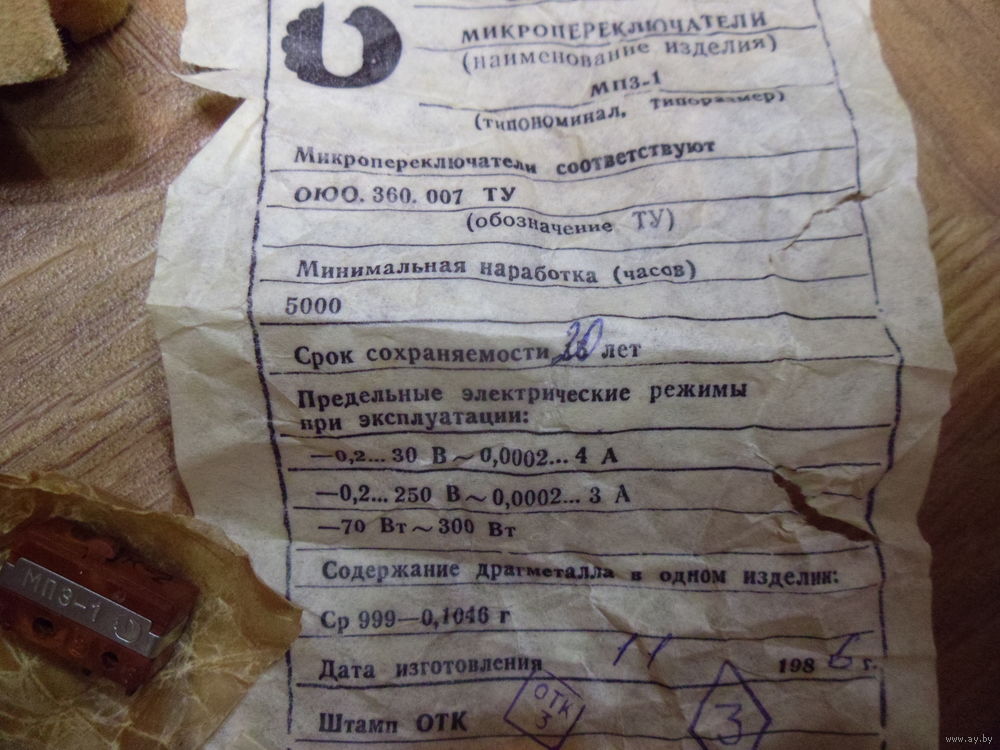 МИКРОПЕРЕКЛЮЧАТЕЛИ
(наименование изделия)
МП3-1
(типономинал, типоразмер)
Микропереключатели соответствуют
ОЮО. 360. 007 ТУ
(обозначение ТУ)
Минимальная наработка (часов)
5000
Срок сохраняемости 20 лет
Предельные электрические режимы
при эксплуатации:
—0,2... 30 В ~ 0,0002... 4 А
—0,2... 250 В ~ 0,0002... 3 А
—70 Вт ~ 300 Вт
Содержание драгметалла в одном изделии:
Ср 999—0,1046 г
Дата изготовления 11 1986 г.
Штамп ОТК
ОТК
3
3
МП3-1
www.ay.by